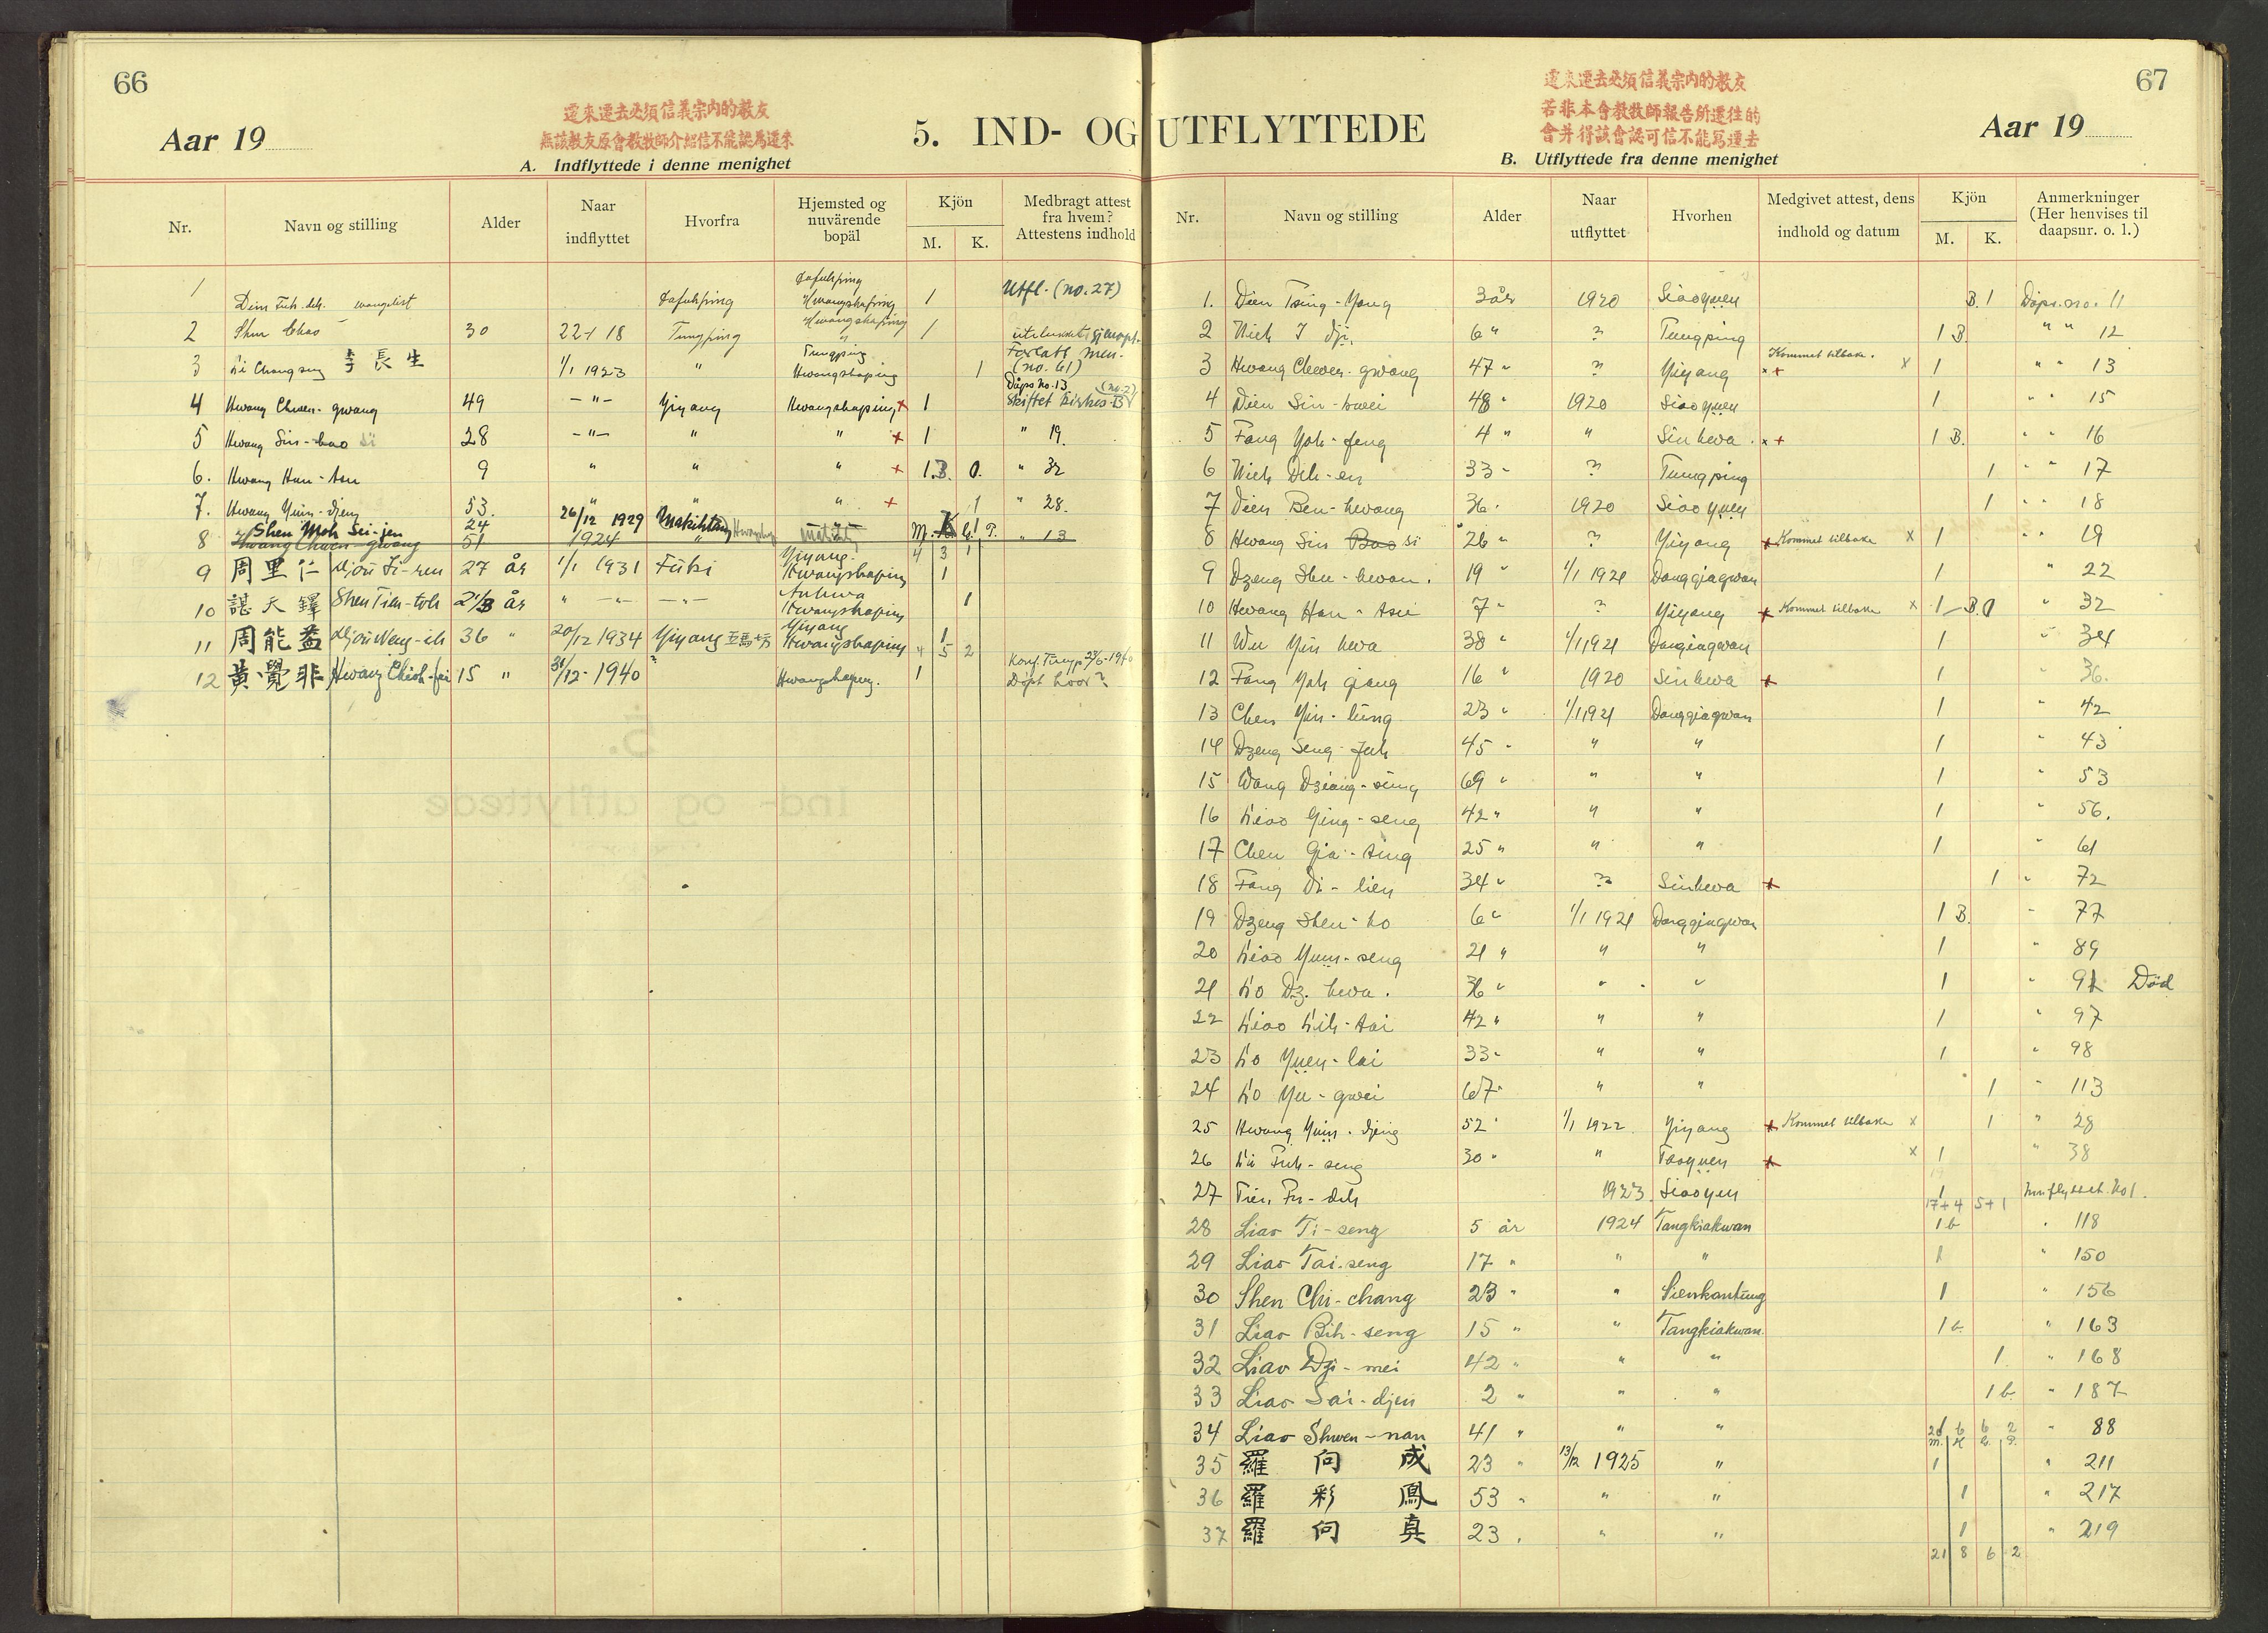 66
遷來遷去必須信義宗內的教友
無該教友原會教牧師介紹信不能認爲遷來
Aar 19
5. IND- OG
A. Indflyttede i denne menighet
Nr. Navn og stilling Alder Naar indflyttet Hvorfra Hjemsted og nuvärende bopäl Kjön M. K. Medbragt attest fra hvem? Attestens indhold
1 Dien Fuh-deh. evangelist Tafuhping Tafuhping Hwangshaping 1 Utfl. (no. 27)
2 Shen Chao 30 22-1 18 Tungping Hwangshaping " 1
3 Li Changseng 李長生 1/1 1923 " Tungping Hwangshaping 1 Forlatt men. (no. 61)
4 Hwang Chwen-gwang 49 -"- Yiyang Hwangshaping + 1 Dåps no. 13 (no. 2)
5 Hwang Sin- si 28 -"- " " + 1 " 19.
6. Hwang Han-tsu 9 " " " + 1.B. 0. " 32
7. Hwang Yuin-djeng 53. " " " + 1 " 28.
Shen Moh Sei-jen 24 26/12 1929 M. K G. P.
8 Hwang Chwen-gwang 51 1924 " " 13
4 3 1
9 周里仁 Djou Li-ren 27 år 1/1 1931 Füki Yiyang. Hwangshaping 1
10 諶天鐸 Shen Tien-toh 21/3 år " -"- -"- Anhwa Hwangshaping 1
11 周能益 Djou Neng-ih 36 " 20/12 1934 Yiyang 五馬坊 Yiyang Hwangshaping 1
4 5 2
12 黃覺非 Hwang Chioh-fei 15 " 31/12-1940 ? Hwangshaping. 1 Konf. Tungp 23/6-1940 Döpt hvor?
67
遷來遷去必須信義宗內的教友
若非本會教牧師報告所遷往的
會并得該會認可信不能寫遷去
UTFLYTTEDE
Aar 19
B. Utflyttede fra denne menighet
Nr. Navn og stilling Alder Naar utflyttet Hvorhen Medgivet attest, dens indhold og datum Kjön M. K. Anmerkninger (Her henvises til daapsnr. o. l.)
1. Dien Tsing-Yang 3 år 1920 Siaoyuen B. 1 Dåps. no. 11
2 Nieh I dji. 6 " ? Tungping 1 B. " " 12
3 Hwang Chwen-gwang 47 " ? Yiyang Kommet tilbake. x 1 " " 13
4 Dien Sin-hwei 48 " 1920 Siaoyuen 1 " " 15
5 Fang Yoh-feng 4 " " Sinhwa. x + 1 B. " " 16
6 Nieh Deh-en 33 " ? Tungping 1 " " 17
7 Dien Ben-hwang 36 " 1920 Siaoyuen 1 " " 18
8 Hwang Sin Bao si 26 " ? Yiyang + Kommet tilbake x 1 " " 19
9 Dzeng Shu-hwan. 19 " 1/1 1921 Danggiagwan 1 " 22
10 Hwang Han-tsu 7 " ? Yiyang + Kommet tilbake x 1 B. 0 " 32
11 Wu Yin hwa 38 " 1/1 1921 Danggiagwan 1 " 34
12 Fang Yoh giang 16 " 1920 Sinhwa + 1 " 36.
13 Chen Yin-lung 23 " 1/1 1921 Danggiagwan 1 " 42
14 Dzeng Seng-fuh 45 " " " 1 " 43
15 Wang Dziang-sung 69 " " " 1 " 53
16 Liao Ging-seng 42 " " " 1 " 56.
17 Chen Gia-ting 25 " " " 1 " 61
18 Fang Di-lien 34 " ? Sinhwa + 1 " 72
19 Dzeng Shen-ho 6 " 1/1 1921 Danggiagwan 1 B. " 77
20 Liao Yuin-seng 21 " " " 1 " 89
21 Lo Dz. hwa. 36 " " " 1 " 91 Död
22 Liao Lih-tai 42 " " " 1 " 97
23 Lo Yuen-lai 33 " " " 1 " 98
24 Lo Yu-gwei 67 " " " 1 " 113
25 Hwang Yuin-djeng 52 " 1/1 1922 Yiyang + Kommet tilbake x 1 " 28
26 Li Fuh-seng 30 " " Taoyuen + x 1 " 38
27 Tien Fu-deh 1923. Siaoyuen 1 Innflyttet. No 1.
17+4 5+1
28 Liao Ti-seng 5 år 1924 Tangkiakwan 1 b " 118
29 Liao Tai-seng 17 " " " 1 " 150
30 Shen Chi-chang 23 " " Sienkantung 1 " 156
31 Liao Bih-seng 15 " " Tangkiakwan. 1 b. " 163
32 Liao Dzi-mei 42 " " " 1. " 168
33 Liao Sai-djen 2 " " " 1 b. " 187
34 Liao Shwen-nan 41 " " " " 88
20 6 6 2
M. K G. P.
35 羅向成 23 " 13/12 1925 " 1 " 211
36 羅彩鳳 53 " " " 1 " 217
37 羅向真 23. " " 1 " 219
21 8 6 2